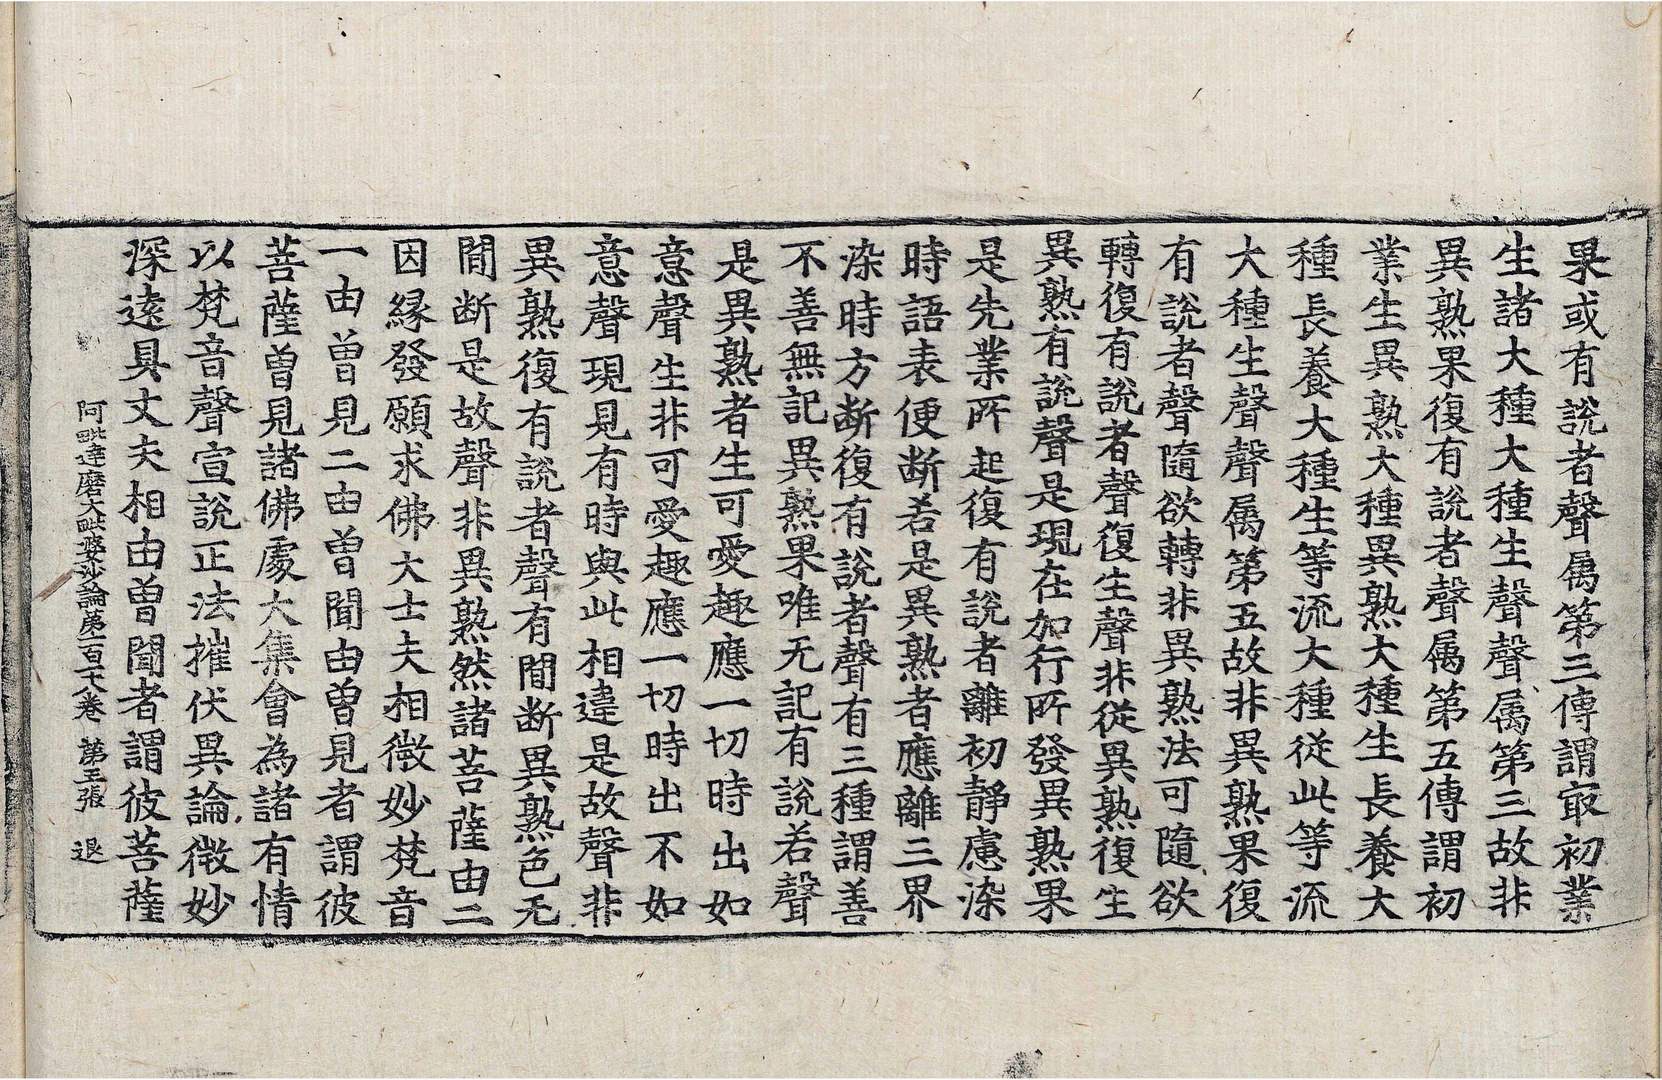 果或有說者聲属第三傳謂㝡初業
生諸大種大種生聲聲属第三故非
異熟果復有說者聲属第五傳謂初
業生異熟大種異熟大種生長養大
種長養大種生等流大種從此等流
大種生聲聲属第五故非異熟果復
有說者聲隨欲轉非異熟法可隨欲
轉復有說者聲復生聲非從異熟復生
異熟有說聲是現在加行所發異熟果
是先業所起復有說者離初靜慮染
時語表便断若是異熟者應離三界
染時方断復有說者聲有三種謂善
不善無記異熟果唯无記有說若聲
是異熟者生可愛趣應一切時出如
意聲生非可愛趣應一切時出不如
意聲現見有時與此相違是故聲非
異熟復有說者聲有閒断異熟色无
閒断是故聲非異熟然諸菩薩由二
因縁發願求佛大士夫相微妙梵音
一由曽見二由曽聞由曽見者謂彼
菩薩曽見諸佛處大集會為諸有情
以梵音聲宣說正法摧伏異論微妙
深遠具丈夫相由曽聞者謂彼菩薩
阿毗達磨大毗婆沙論第一百十八卷 第五張 退